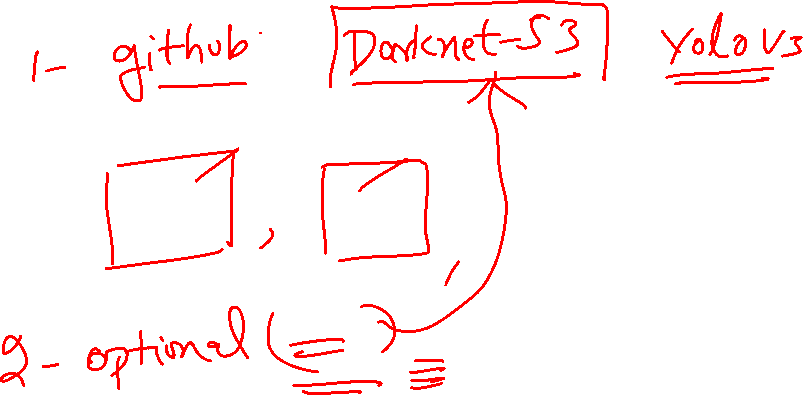 1- github Darknet-53 Yolo V3
2- optional ( )